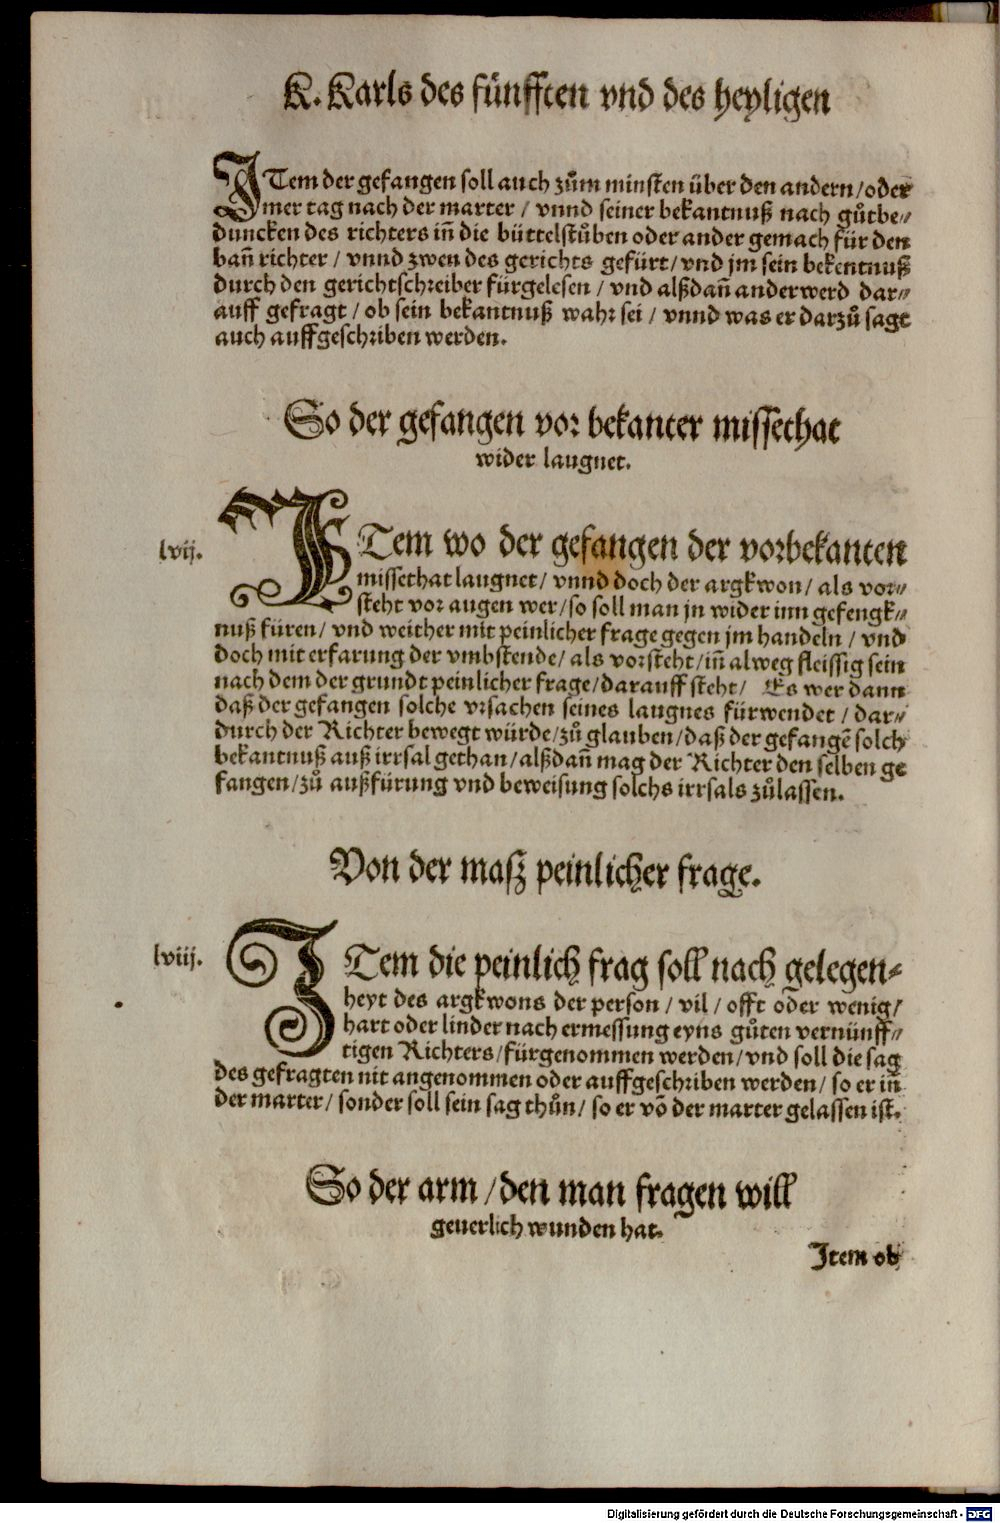 K. Karls des fünfften vnd des heyligen
ITem der gefangen soll auch zům minsten über den andern/oder
mer tag nach der marter / vnnd seiner bekantnuß nach gůtbe⸗
duncken des richters iñ die büttelstůben oder ander gemach für den
bañ richter / vnnd zwen des gerichts gefürt/ vnd jm sein bekentnuß
durch den gerichtschreiber fürgelesen / vnd alßdañ anderwerd dar⸗
auff gefragt / ob sein bekantnuß wahr sei / vnnd was er darzů sagt
auch auffgeschriben werden.
So der gefangen vor bekanter missethat
wider laugnet.
lvij.
ITem wo der gefangen der vorbekanten
missethat laugnet/ vnnd doch der argkwon/ als vor⸗
steht vor augen wer/so soll man jn wider inn gefengk⸗
nuß füren/ vnd weither mit peinlicher frage gegen jm handeln / vnd
doch mit erfarung der vmbstende/ als vorsteht/iñ alweg fleissig sein
nach dem der grundt peinlicher frage/darauff steht/ Es wer dann
daß der gefangen solche vrsachen seines laugnes fürwendet / dar⸗
durch der Richter bewegt würde/zů glauben/daß der gefangẽ solch
bekantnuß auß irrsal gethan/alßdañ mag der Richter den selben ge
fangen/zů außfürung vnd beweisung solchs irrsals zůlassen.
Von der masz peinlicher frage.
lviij.
ITem die peinlich frag soll nach gelegen⸗
heyt des argkwons der person / vil / offt oder wenig/
hart oder linder nach ermessung eyns gůten vernünff⸗
tigen Richters/fürgenommen werden/vnd soll die sag
des gefragten nit angenommen oder auffgeschriben werden/ so er iñ
der marter/ sonder soll sein sag thůn/ so er võ der marter gelassen ist.
So der arm /den man fragen will
geuerlich wunden hat.
Item ob
Digitalisierung gefördert durch die Deutsche Forschungsgemeinschaft - DFG